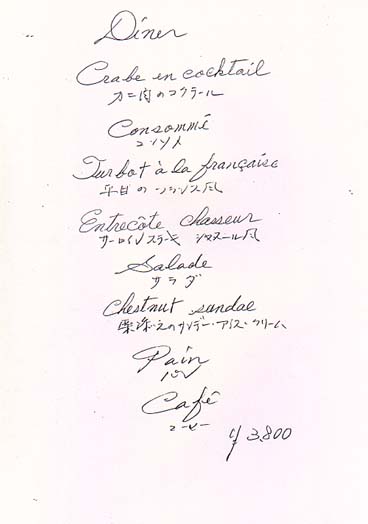 Dîner
Crabe en cocktail
カニ肉のコクテール
Consommé
コンソメ
Turbot à la française
平目のフランス風
Entrecôte chasseur
サーロインステーキ シャスール風
Salade
サラダ
Chestnut sundae
栗添えのサンデー・アイス・クリーム
Pain
パン
Café
コーヒー
¥3,800